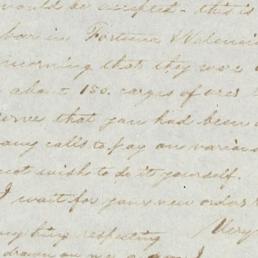 would be accepted - this is
bar in Fortuna & Valencia
morning that they were
about 150. cargos of ores
that you had been
any calls to pay on various
not wish to do it yourself.
I wait for your new orders
Very
any thing respecting
drawn on me